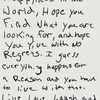 Happiness in the
World, Hope you
Find what you are
looking for, and hope
You live with No
Regrets. I guess
everything happens for
a Reason and you have
to live with that.
Live, Love, laugh and